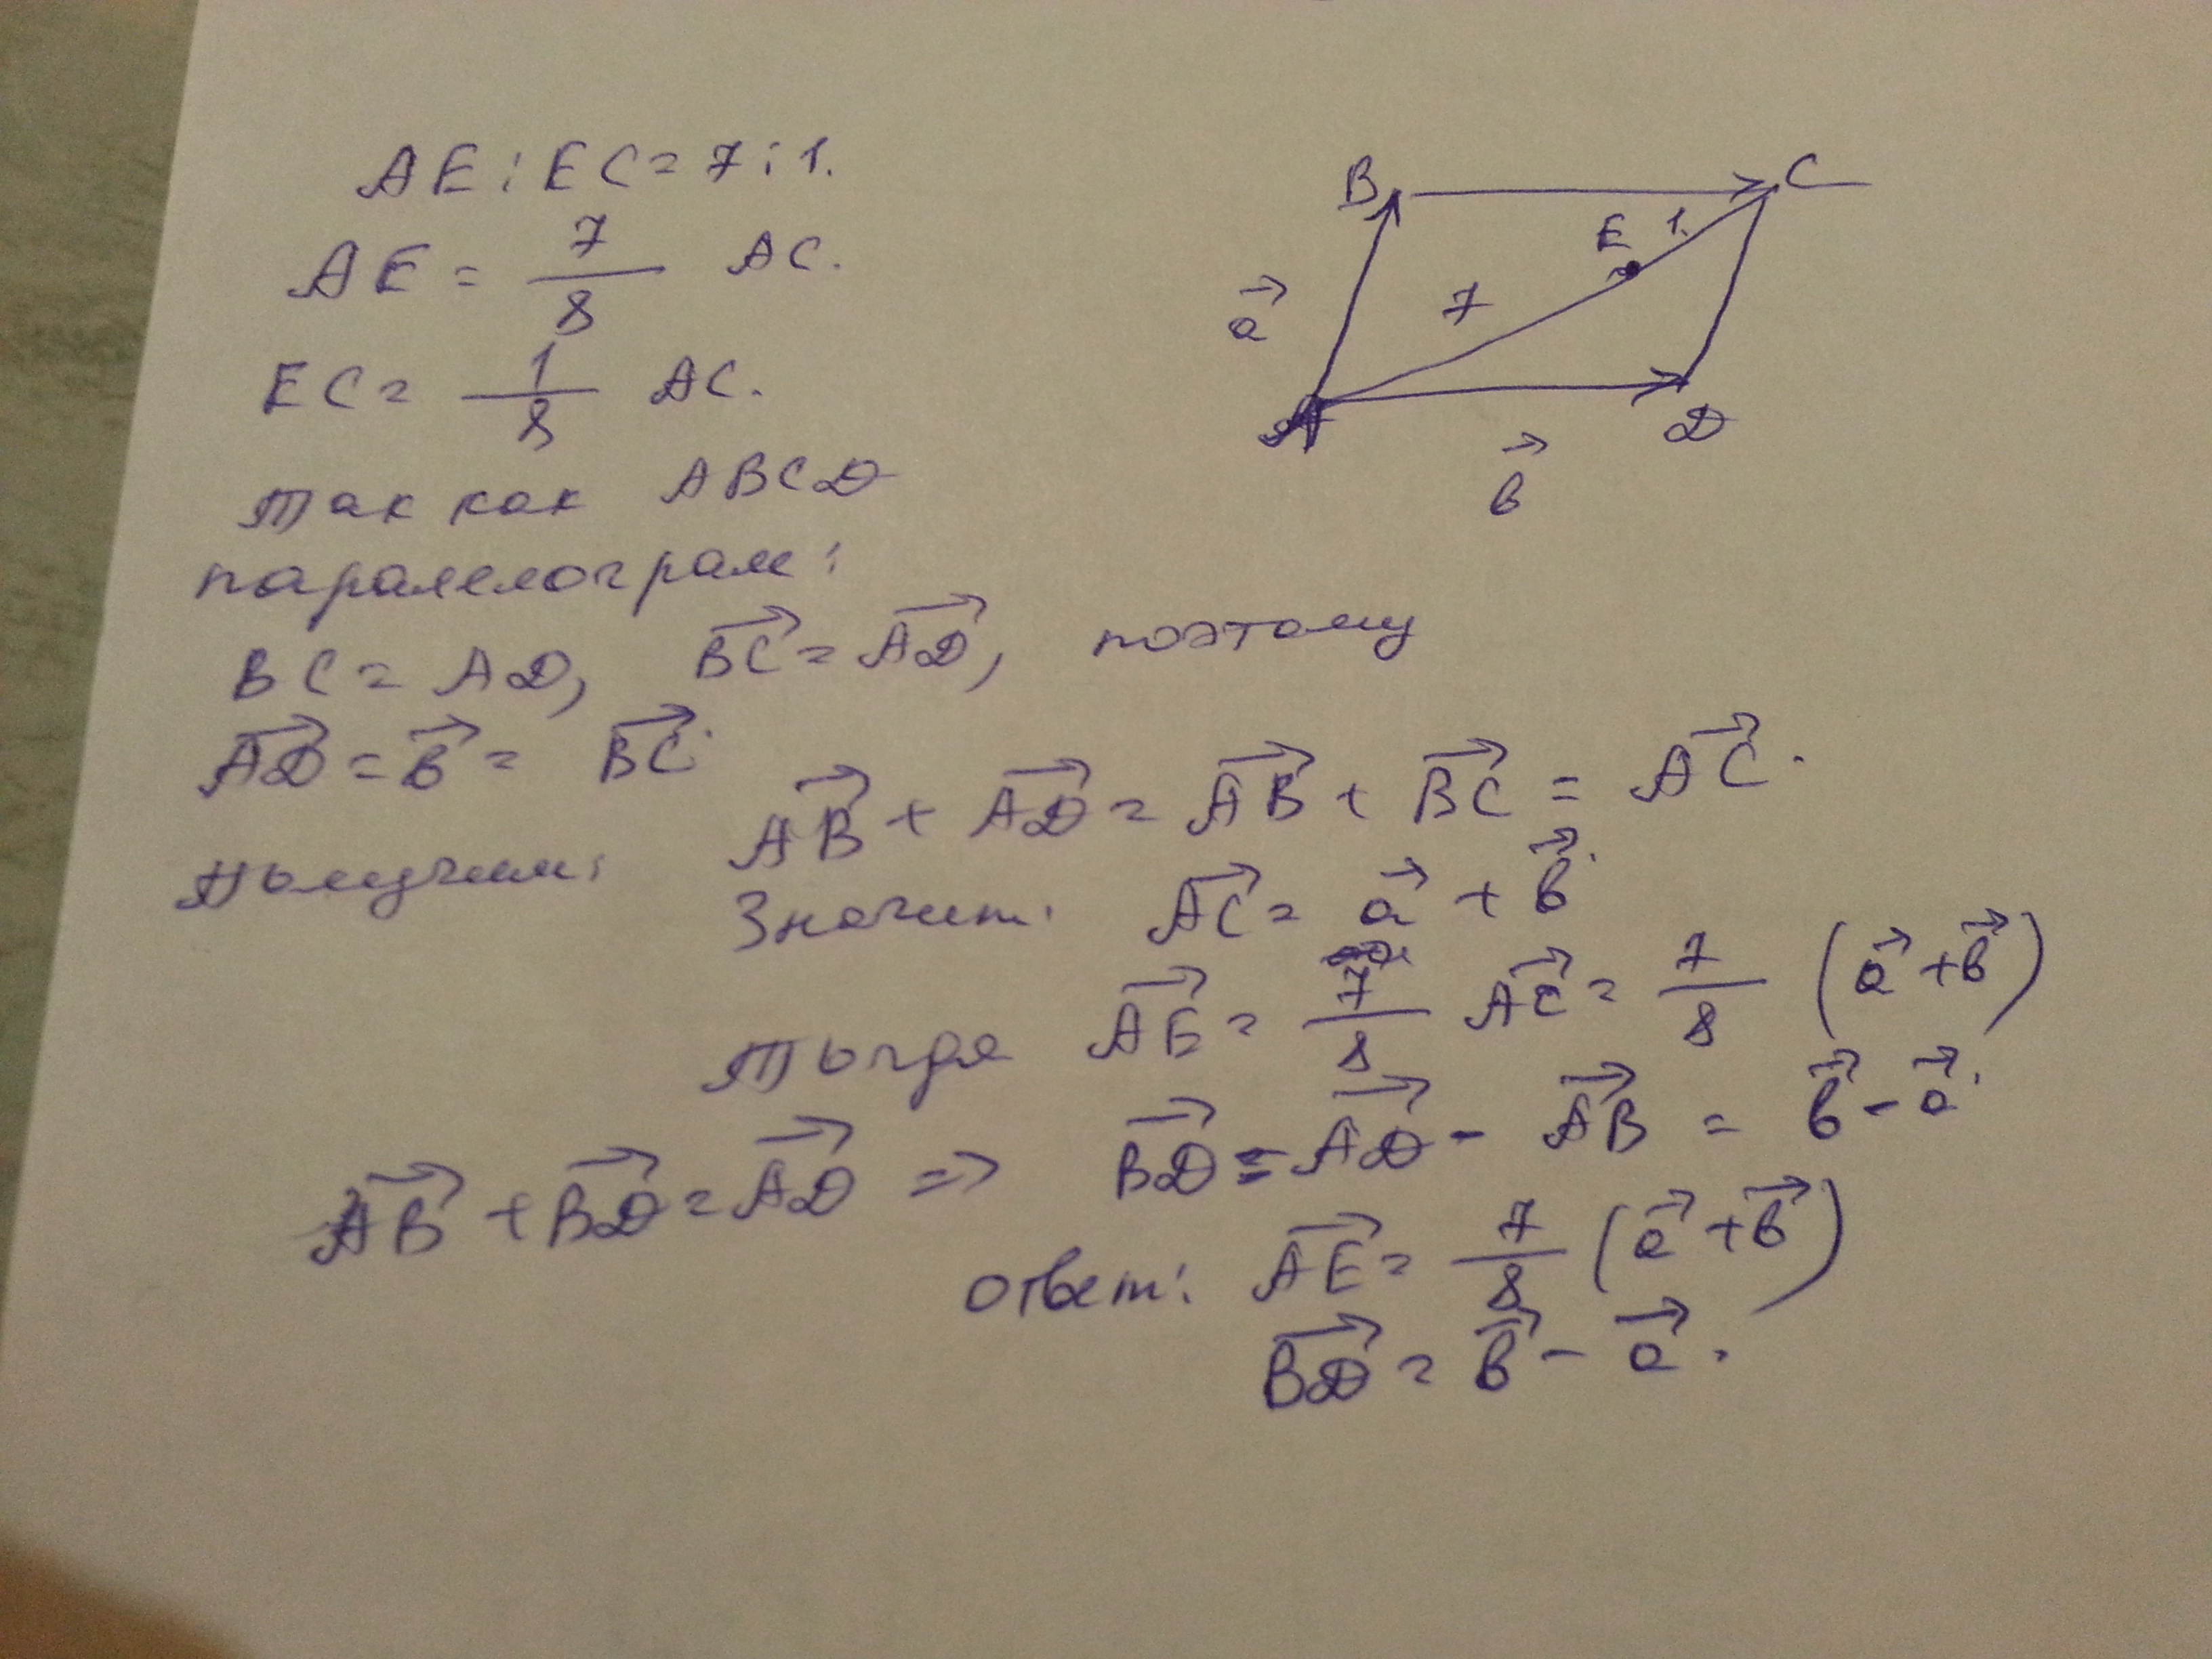 AE : EC = 7 : 1.
AE = 7/8 AC.
EC = 1/8 AC.
Так как ABCD
паралелограм:
BC = AD, B⃗C⃗ = A⃗D⃗, поэтому
A⃗D⃗ = b⃗ = B⃗C⃗.
получим: A⃗B⃗ + A⃗D⃗ = A⃗B⃗ + B⃗C⃗ = A⃗C⃗.
Значит: A⃗C⃗ = a⃗ + b⃗.
Тогда A⃗E⃗ = 7/8 A⃗C⃗ = 7/8 (a⃗ + b⃗)
A⃗B⃗ + B⃗D⃗ = A⃗D⃗ => B⃗D⃗ = A⃗D⃗ - A⃗B⃗ = b⃗ - a⃗.
ответ: A⃗E⃗ = 7/8 (a⃗ + b⃗)
B⃗D⃗ = b⃗ - a⃗.
B C
E 1.
7
a⃗
A D
b⃗